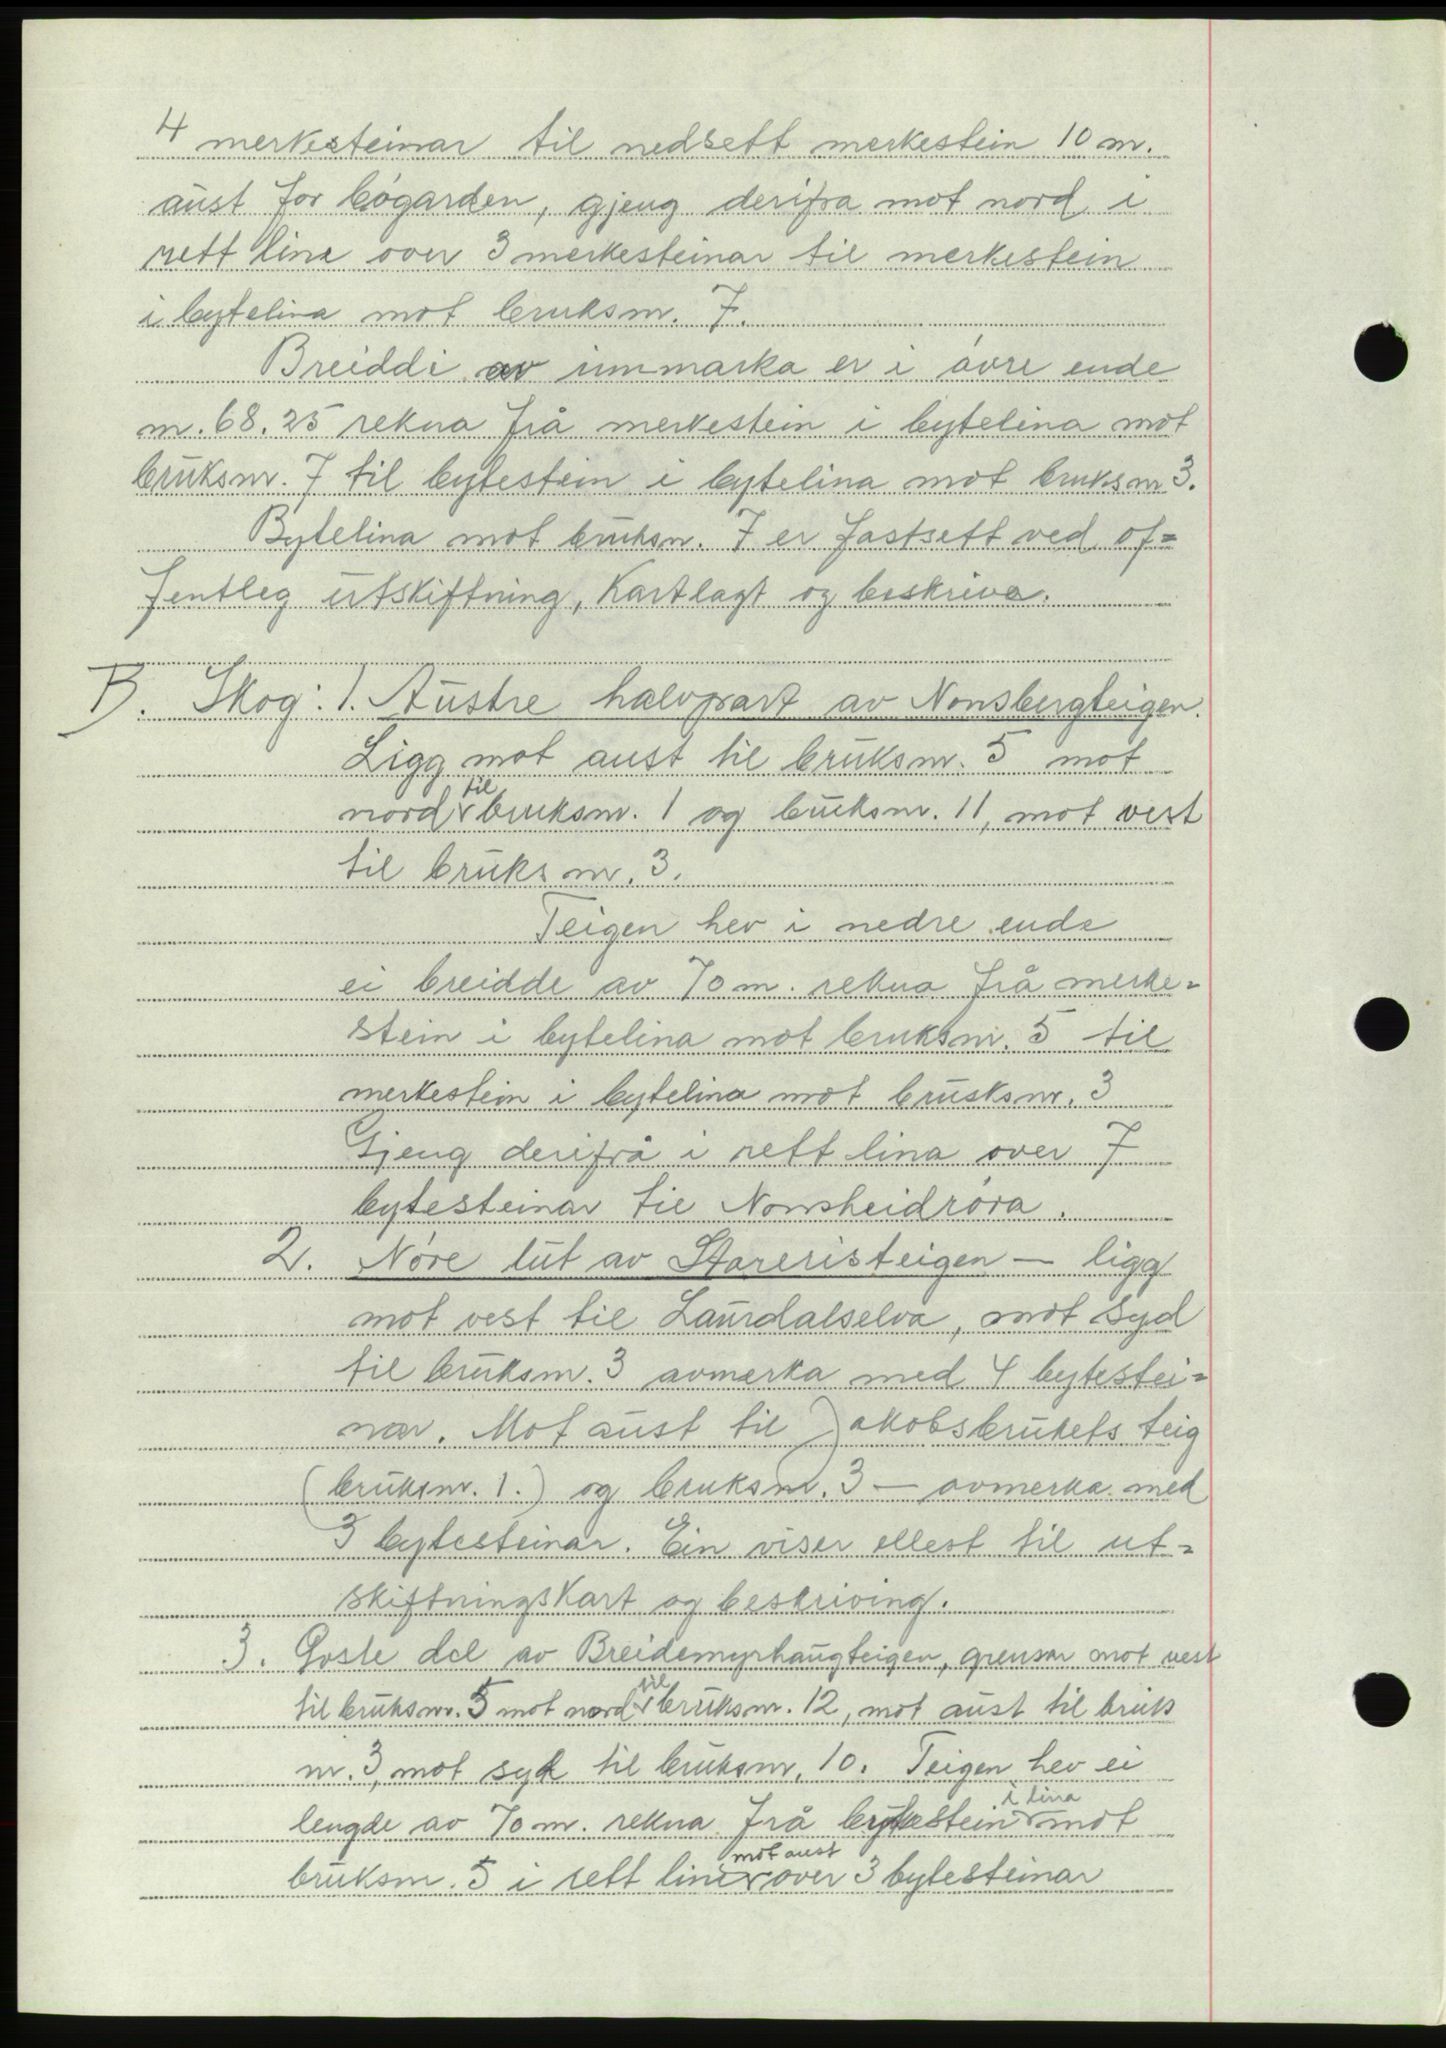 4 merkesteinar til nedsett merkestein 10 m.
aust for bøgarden, gjeng derifra mot nord i
rett lina over 3 merkesteinar til merkestein
i bytelina mot bruksnr. 7.
Breiddi av innmarka er i øvre ende
m. 68.25 rekna frå merkestein i bytelina mot
bruksnr. 7 til bytestein i bytelina mot bruksnr 3.
Bytelina mot bruksn. 7 er fastsett ved of=
fentleg utskiftning, kartlagt og beskrive.
B. Skog: 1. Austre halvpart av Nonsbergteigen.
Ligg mot aust til bruksnr. 5 mot
nord til bruksnr. 1 og bruksnr. 11, mot vest
til bruksnr. 3.
Teigen hev i nedre ende
ei breidde av 70 m. rekna frå merke=
stein i bytelina mot bruksnr. 5 til
merkestein i bytelina mot brusksnr. 3
Gjeng derifrå i rett lina over 7
bytesteinar til Nonsheidrøra.
2. Nøre lut av Storeristeigen — ligg
mot vest til Laurdalselva, mot syd
til bruksnr. 3 avmerka med 4 bytestei=
nar. Mot aust til Jakobsbrukets teig
(bruksnr. 1.) og bruksnr. 3 — avmerka med
3 bytesteinar. Ein viser ellest til ut=
skiftningskart og beskriving.
3. Goste del av Breidemyrhaugteigen, grensar mot vest
til bruksnr. 5 mot nord til bruksnr. 12, mot aust til bruks
nr. 3, mot syd til bruksnr. 10. Teigen hev ei
lengde av 70 m. rekna frå bytestein i lina mot
bruksnr. 5 i rett line mot aust over 3 bytesteinar